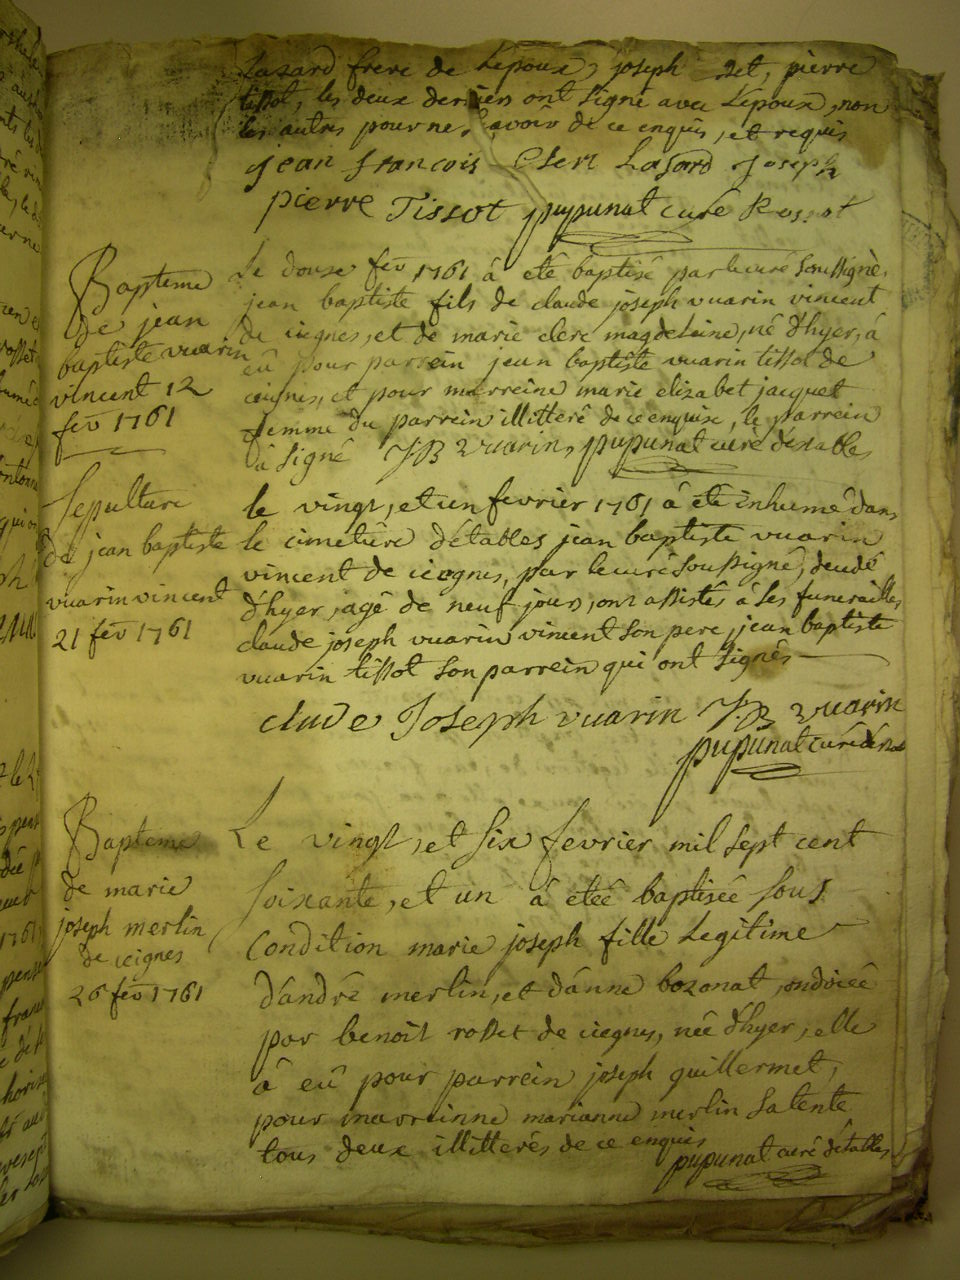 Lasard frere de Lepoux, joseph net, pierre
tissot, les deux derniers ont signe avec Lepoux, non
les autres pour ne scavoir de ce enquis, et requis
jean francois Clert Lasard joseph
pierre Tissot pupunat curé Rossot
Bapteme
de jean
baptiste vuarin
vincent 12
fev 1761
Le douse fev 1761 à eté baptisé par le curé soussigné,
jean baptiste fils de claude joseph vuarin vincent
de icignes, et de marie clerc magdeleine, né d'hyer, à
eu pour parrein jean baptiste vuarin tissot de
ceignes, et pour marreine marie elizabet jacquet
femme du parrein illitteré de ce enquise, le parrein
à signé JB vuarin, pupunat curé d'étables
Sepulture
de jean baptiste
vuarin vincent
21 fev 1761
le vingt, et un fevrier 1761 à eté inhumé dans
le cimetiere détables jean baptiste vuarin
vincent de icegnes, par le curé soussigné, decedé
d'hyer, agé de neuf jours, ont assistés à ses funerailles
claude joseph vuarin vincent son pere, jean baptiste
vuarin tissot son parrein qui ont signés
clude Joseph vuarin J.B vuarin
pupunat curé
Bapteme
de marie
joseph merlin
de icignes
26 fev 1761
Le vingt, et six fevrier mil sept cent
soixante, et un à etée baptisée sous
condition marie joseph fille Legitime
d'andré merlin, et d'anne bozonat, ondoiée
par benoit rosset de icegnes, née d'hyer, elle
à eü pour parrein joseph guillermet,
pour marreinne marianne merlin sa tente
tous deux illitterés de ce enquis
pupunat curé détables